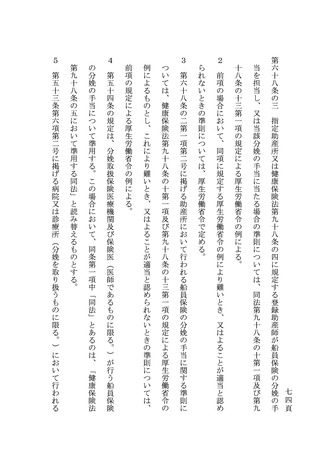 七四頁
第六十八条の三　指定助産所又は健康保険法第九十八条の四に規定する登録助産師が船員保険の分娩の手
当を担当し、又は当該分娩の手当に当たる場合の準則については、同法第九十八条の十第一項及び第九
十八条の十三第一項の規定による厚生労働省令の例による。
２　前項の場合において、同項に規定する厚生労働省令の例により難いとき、又はよることが適当と認め
られないときの準則については、厚生労働省令で定める。
３　第六十八条の二第一項第二号に掲げる助産所において行われる船員保険の分娩の手当に関する準則に
ついては、健康保険法第九十八条の十第一項及び第九十八条の十三第一項の規定による厚生労働省令の
例によるものとし、これにより難いとき、又はよることが適当と認められないときの準則については、
前項の規定による厚生労働省令の例による。
４　第五十四条の規定は、分娩取扱保険医療機関及び保険医（医師であるものに限る。）が行う船員保険
の分娩の手当について準用する。この場合において、同条第一項中「同法」とあるのは、「健康保険法
第九十八条の五において準用する同法」と読み替えるものとする。
５　第五十三条第六項第二号に掲げる病院又は診療所（分娩を取り扱うものに限る。）において行われる